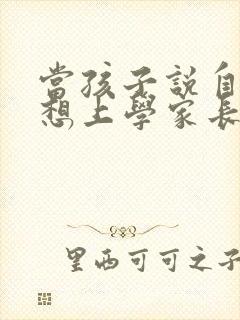 當孩子說自
想上學家長
里西可可之子